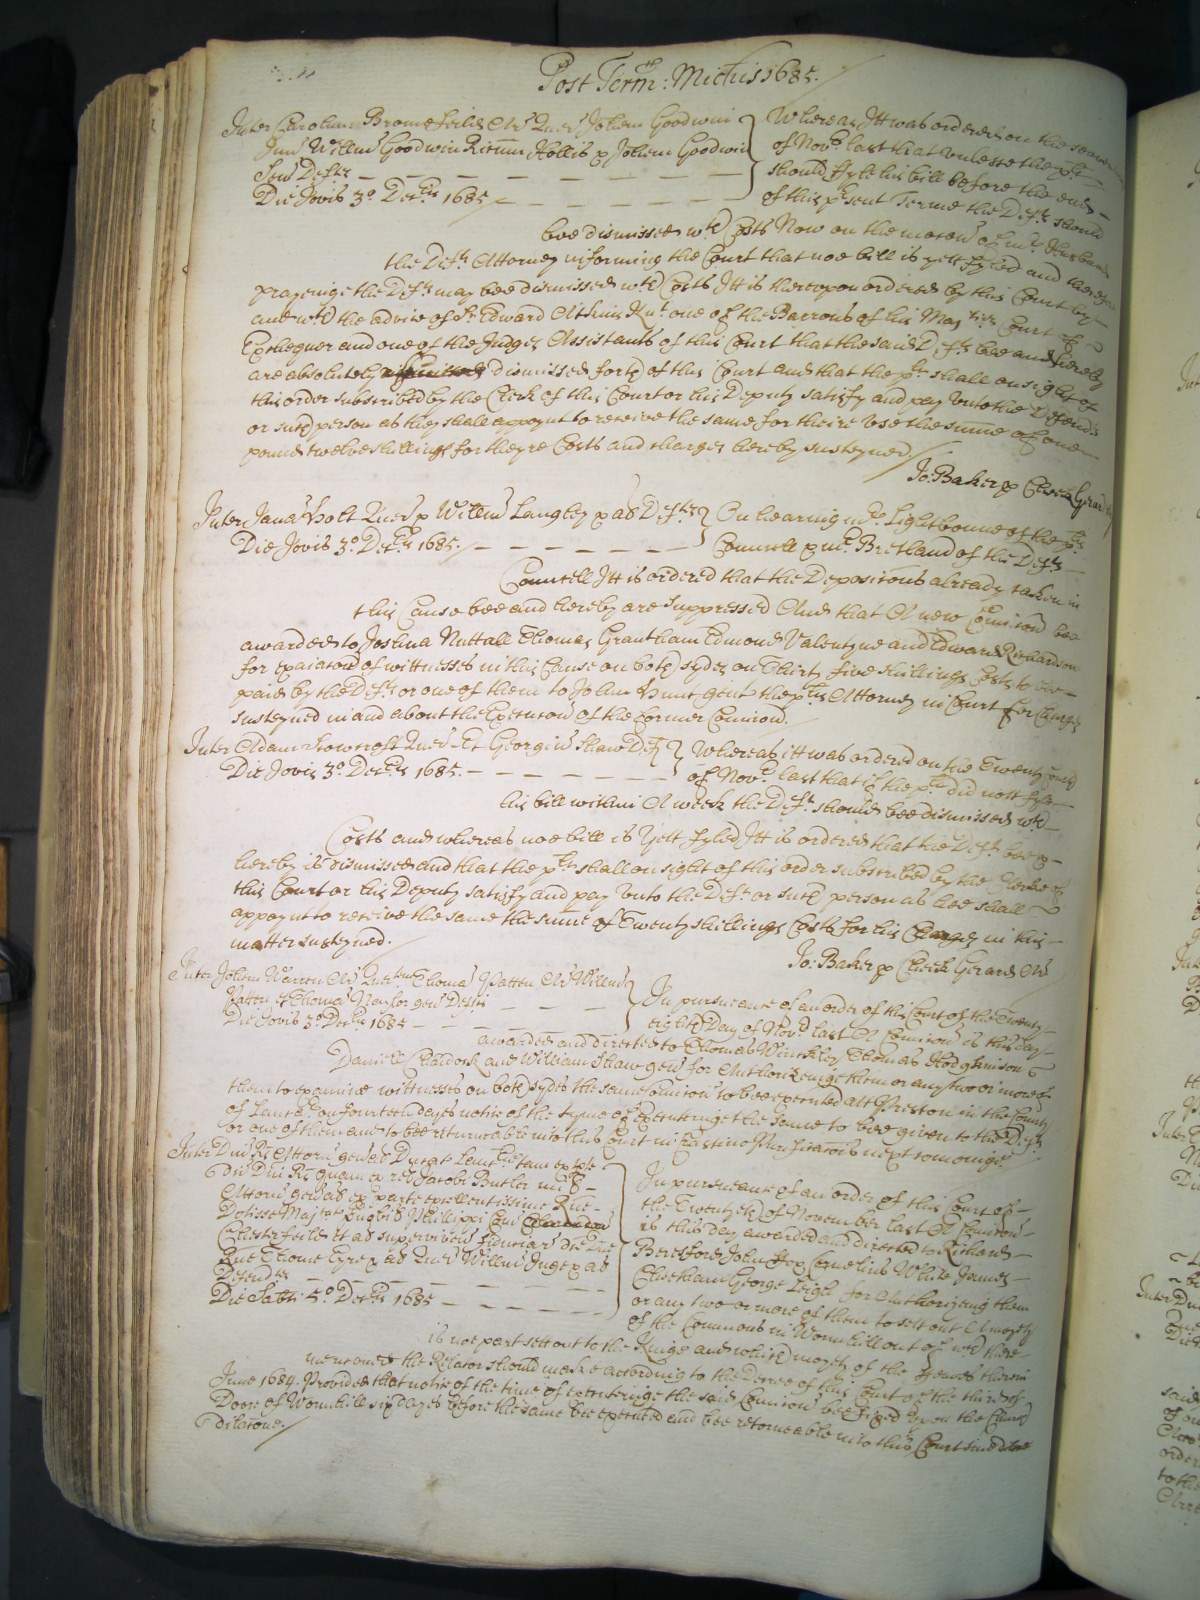 Post Term: Michis 1685.
Inter Carolum Brome Feild Ar Quer Johem Goodwin
Jun Willm Goodwin Ricum Hollis & Johem Goodwin
Sen Defts
Die Jovis 3o Decris 1685
Whereas Itt was ordered on the
of Novr last that unlesse the plt
should fyle his bill before the end
of this psent Terme the Defts should
bee dismissed wth Costs Now on the motion of mr
the Defts Attorney informing the Court that noe bill is yett fyled and therefore
prayeinge the Defts may bee dismissed wth Costs Itt is thereupon ordered by this Court by
and wth the advice of Sr Edward Atkins Knt one of the Barrons of his Maties Court of
Exchequer and one of the Judges Assistants of this Court that the said Defts bee and hereby
are absolutely dismissed forth of this Court and that the plt shall on sight of
this order subscribed by the Clerk of this Court or his Deputy satisfy and pay unto the Defendts
or such person as they shall appoynt to receive the same for theire use the summe of one
pound twelve shillings for theyre Costs and charges hereby susteyned
Jo: Baker p Cleric Gerard
Inter Jana Holt Quer & Willm Langley & als Defts
Die Jovis 3o Decris 1685.
On hearing mr Lightbowne of the plts
Councell & mr Bretland of the Defts
Councell Itt is ordered that the Depositions already taken in
this Cause bee and hereby are suppressed And that A new Comicon bee
awarded to Joshua Nuttall Thomas Grantham Edmond Valentyne and Edward Richardson
for exaiacon of wittnesses in this Cause on both sydes on Thirty five shillings Costs to bee
paid by the Defts or one of them to John Hunt gent the plts Attorney in Court for Charges
susteyned in and about the Execucon of the former Comicon.
Inter Adam Howcroft Quer Et Georgiu Shaw Deft
Die Jovis 3o Decris 1685.
Whereas itt was ordered on the Twenty
of Novr last that if the plt did nott fyle
his bill within A week the Deft should bee dismissed wth
Costs and whereas noe bill is yett fyled Itt is ordered that the Deft bee &
hereby is dismissed and that the plt shall on sight of this order subscribed by the Clerke of
this Court or his Deputy satisfy and pay unto the Deft or such person as hee shall
appoynt to receive the same the summe of Twenty shillings Costs for his Charges in this
matter susteyned.
Jo: Baker p Cleric Gerard Ar
Inter Johem Warren Ar Quer Thoma Patten Ar Willm
Patten & Thoma Naylor gen Defts
Die Jovis 3o Decris 1685
In pursueance of an order of this Court of the Twenty
eighth Day of Novr last A Comicon is this day
awarded and directed to Thomas Winckley Thomas Hodgkinson
Daniell Chaddock and William Shaw gen for Authorizeinge them or any two or more of
them to examine wittnesses on both sydes the same Comicon to bee executed att Preston in the County
of Lancr on fourteen dayes notice of the tyme of Executeinge the same to bee given to the Defts
or one of them and to bee returneable into this Court in Crastino Purificacois next comeinge
Inter Dni Rs Attorn genal Ducat Lancr tam ex pte
dci Dni Rs quam ex rel Jacobi Butler mil
Attorn genal ex parte excellentissime Rne
Dotisse Majtat Anglie Phillippi Com
Chesterfeild et al supervisor fiduciar dce Dne
Rne Thome Eyre & als Quer Willm Inge & als
Defendtes
Die Sabti 5o Decris 1685
In pursueance of an order of this Court of
the Twentyeth of November last A Comicon
is this day awarded and directed to Richard
Beresford John Fox Cornelius White James
Cheetham George Leigh for Authorizeing them
or any two or more of them to sett out A moyety
of the Commons in Wormhill out of wch there
is noe part sett out to the Kinge and which moyety of the fences therein
menconed the Relator should make according to the Decree of this Court of the third of
June 1684. Provided that notice of the time of executeinge the said Comicon bee fixed upon the Church
Doore of Wormhill six dayes before the same bee executed and bee returneable into this Court sine
Dilatone.